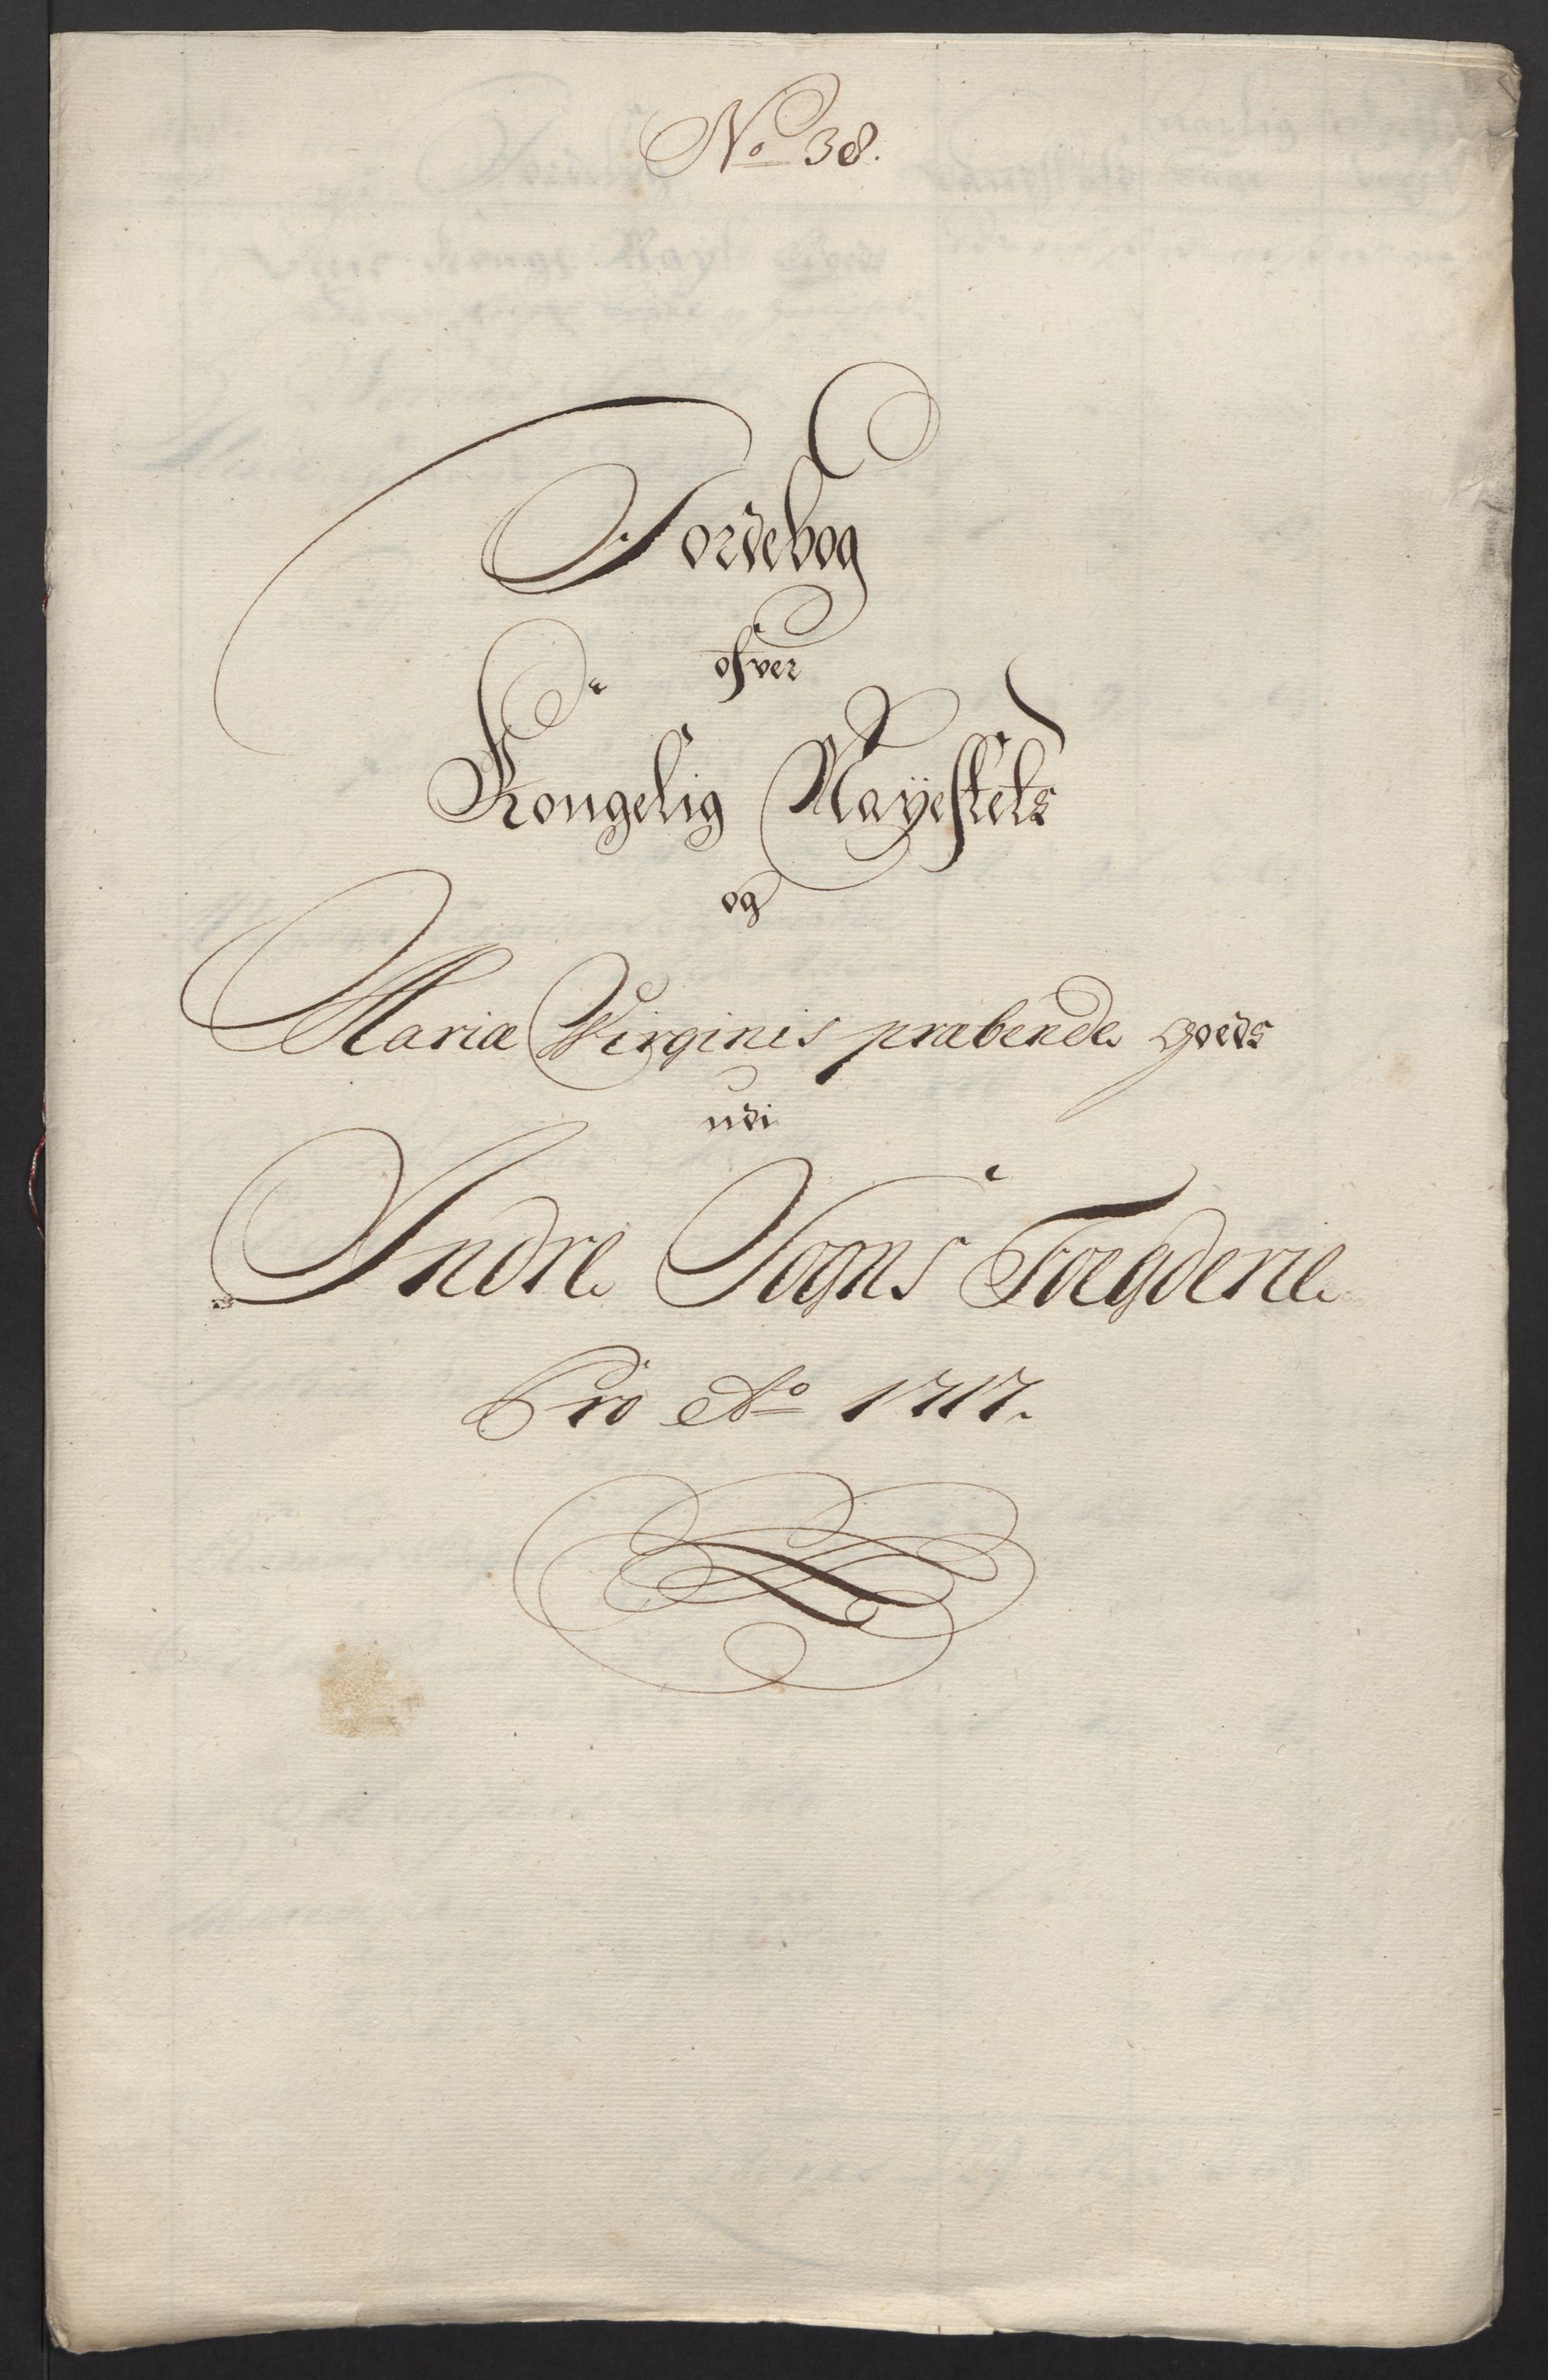 No 38.
Jordebog
ofver
Kongelig Mayestets
og
Mariæ Virginis præbende goeds
udi
Indre Sogns Foegderie
Pro Ao 1717.